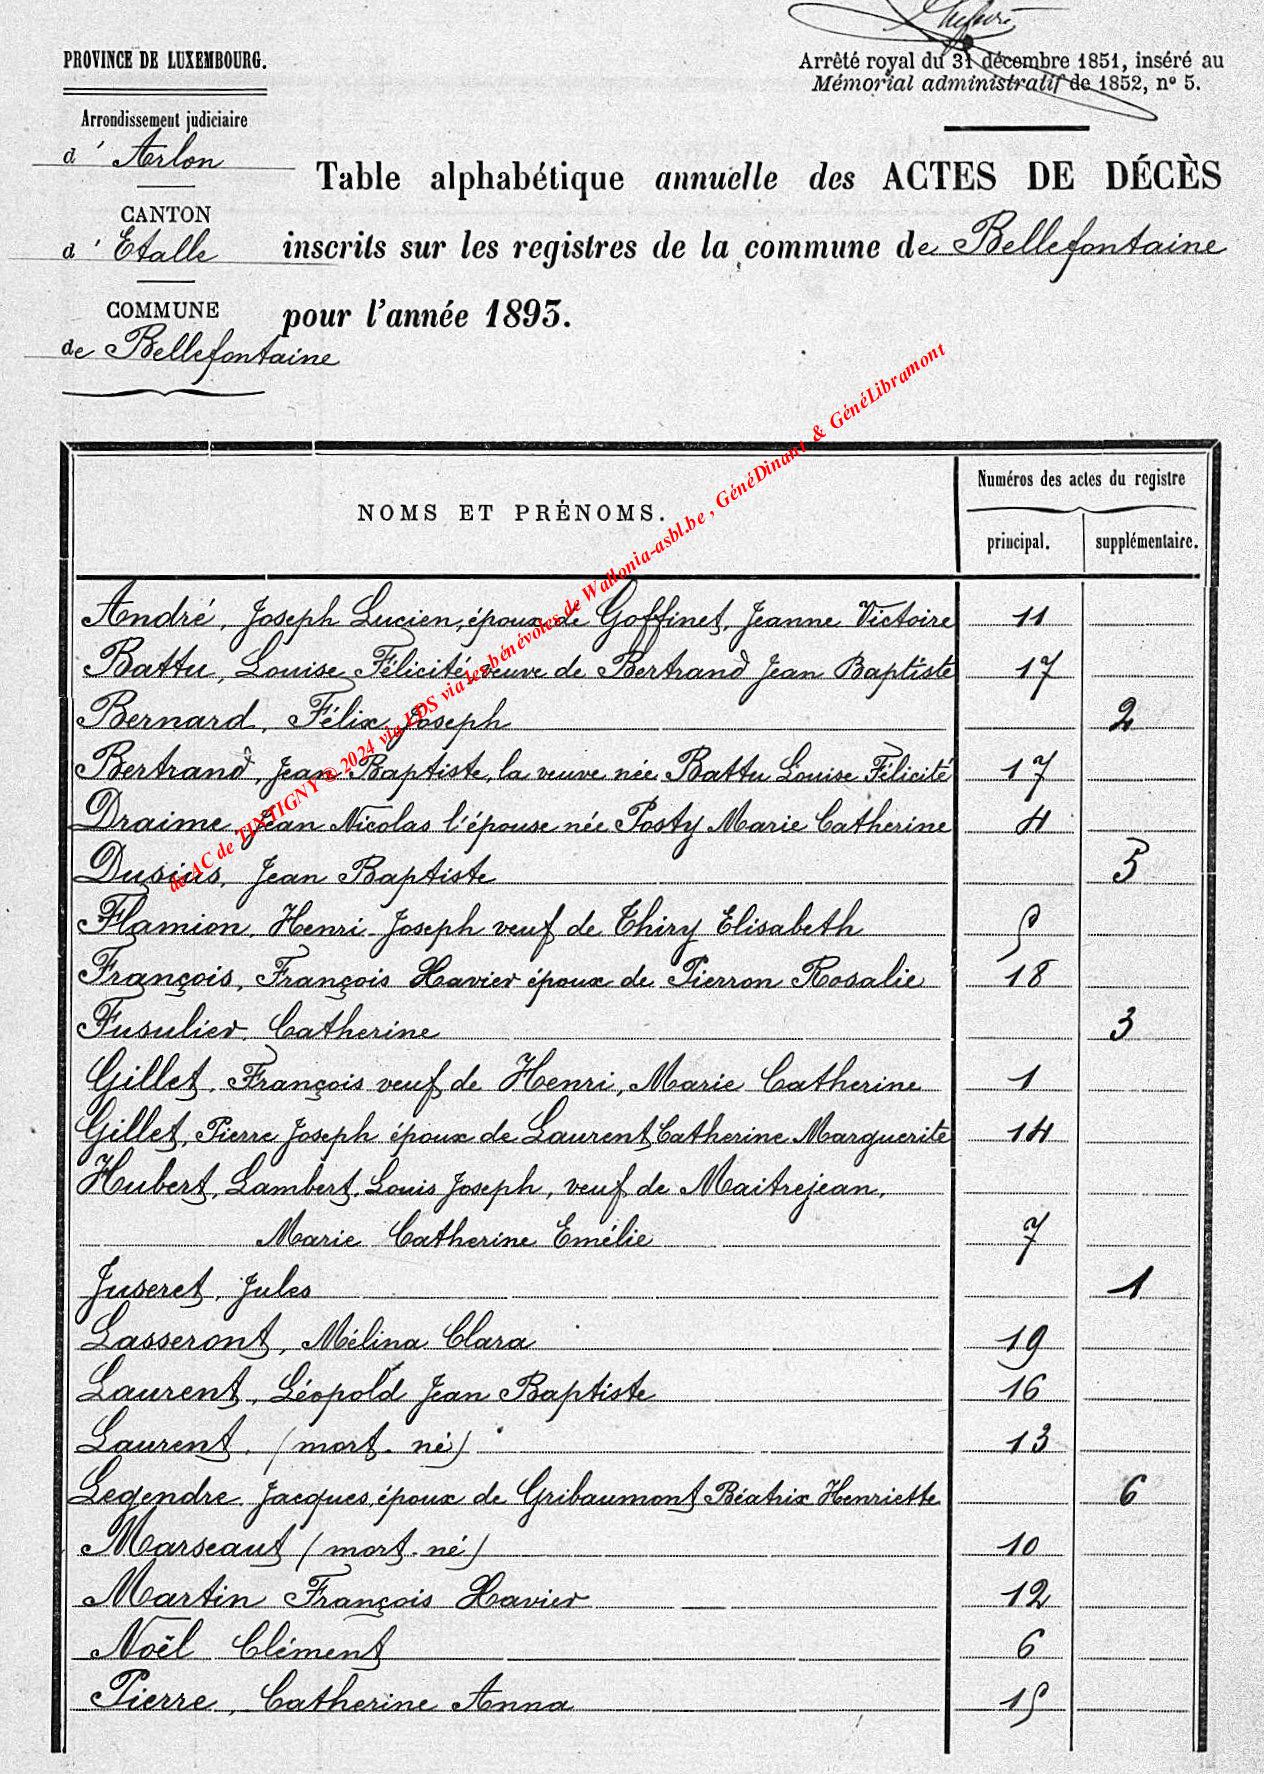 PROVINCE DE LUXEMBOURG.
Arrêté royal du 31 décembre 1851, inséré au
Mémorial administratif de 1852, nº 5.
Arrondissement judiciaire
d' Arlon
Table alphabétique annuelle des ACTES DE DÉCÈS
CANTON
d' Etalle
inscrits sur les registres de la commune de Bellefontaine
COMMUNE
pour l'année 1893.
de Bellefontaine
de AC de TINTIGNY © 2024 via LDS via les bénévoles de Wallonia-asbl.be , GénéDinant & GénéLibramont
NOMS ET PRÉNOMS.
Numéros des actes du registre
principal. supplémentaire.
André, Joseph Lucien, époux de Goffinet, Jeanne Victoire 11
Battu, Louise Félicité veuve de Bertrand Jean Baptiste 17
Bernard, Félix Joseph 2
Bertrand, Jean Baptiste, la veuve née Battu Louise Félicité 17
Draime Jean Nicolas l'épouse née Posty Marie Catherine 4
Dusius, Jean Baptiste 5
Flamion, Henri-Joseph veuf de Thiry Elisabeth 5
François, François Xavier époux de Pierron Rosalie 18
Fusulier Catherine 3
Gillet, François veuf de Henri, Marie Catherine 1
Gillet, Pierre Joseph époux de Laurent Catherine Marguerite 14
Hubert, Lambert Louis Joseph, veuf de Maitrejean,
Marie Catherine Emélie 7
Juseret, Jules 1
Lasseront, Mélina Clara 19
Laurent, Léopold Jean Baptiste 16
Laurent. (mort-né) 13
Legendre Jacques, époux de Gribaumont Béatrix Henriette 6
Marseaut (mort-né) 10
Martin François Xavier 12
Noël Clément 6
Pierre, Catherine Anna 15